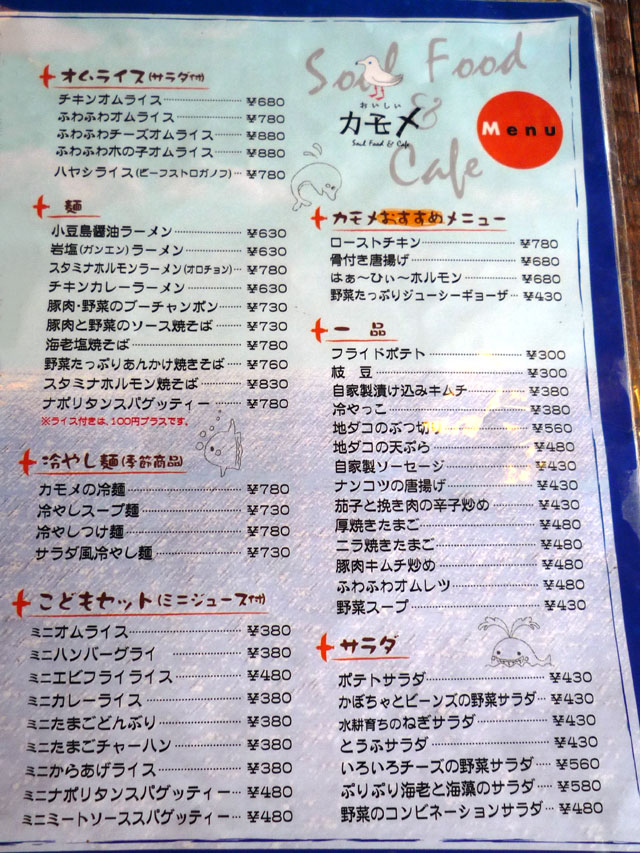 Soul Food
& Cafe
おいしい
カモメ
Soul Food & Cafe
Menu
オムライス(サラダ付)
チキンオムライス ¥680
ふわふわオムライス ¥780
ふわふわチーズオムライス ¥880
ふわふわ木の子オムライス ¥880
ハヤシライス(ビーフストロガノフ) ¥780
麺
小豆島醤油ラーメン ¥630
岩塩(ガンエン)ラーメン ¥630
スタミナホルモンラーメン(オロチョン) ¥780
チキンカレーラーメン ¥630
豚肉・野菜のブーチャンポン ¥730
豚肉と野菜のソース焼そば ¥730
海老塩焼そば ¥780
野菜たっぷりあんかけ焼きそば ¥760
スタミナホルモン焼そば ¥830
ナポリタンスパゲッティー ¥780
※ライス付きは、100円プラスです。
冷やし麺(季節商品)
カモメの冷麺 ¥780
冷やしスープ麺 ¥730
冷やしつけ麺 ¥780
サラダ風冷やし麺 ¥730
こどもセット(ミニジュース付)
ミニオムライス ¥380
ミニハンバーグライ ¥380
ミニエビフライライス ¥480
ミニカレーライス ¥380
ミニたまごどんぶり ¥380
ミニたまごチャーハン ¥380
ミニからあげライス ¥380
ミニナポリタンスパゲッティー ¥480
ミニミートソーススパゲッティー ¥480
カモメおすすめメニュー
ローストチキン ¥780
骨付き唐揚げ ¥680
はぁ〜ひぃ〜ホルモン ¥680
野菜たっぷりジューシーギョーザ ¥430
一品
フライドポテト ¥300
枝豆 ¥300
自家製漬け込みキムチ ¥380
冷やっこ ¥380
地ダコのぶつ切り ¥560
地ダコの天ぷら ¥480
自家製ソーセージ ¥430
ナンコツの唐揚げ ¥430
茄子と挽き肉の辛子炒め ¥430
厚焼きたまご ¥480
ニラ焼きたまご ¥480
豚肉キムチ炒め ¥480
ふわふわオムレツ ¥480
野菜スープ ¥430
サラダ
ポテトサラダ ¥430
かぼちゃとビーンズの野菜サラダ ¥430
水耕育ちのねぎサラダ ¥430
とうふサラダ ¥430
いろいろチーズの野菜サラダ ¥560
ぷりぷり海老と海藻のサラダ ¥580
野菜のコンビネーションサラダ ¥480